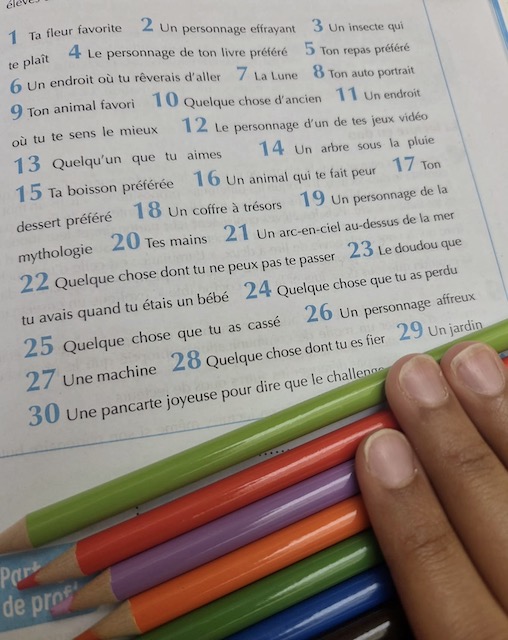 1 Ta fleur favorite 2 Un personnage effrayant 3 Un insecte qui
te plaît 4 Le personnage de ton livre préféré 5 Ton repas préféré
6 Un endroit où tu rêverais d'aller 7 La Lune 8 Ton auto portrait
9 Ton animal favori 10 Quelque chose d'ancien 11 Un endroit
où tu te sens le mieux 12 Le personnage d'un de tes jeux vidéo
13 Quelqu'un que tu aimes 14 Un arbre sous la pluie
15 Ta boisson préférée 16 Un animal qui te fait peur 17 Ton
dessert préféré 18 Un coffre à trésors 19 Un personnage de la
mythologie 20 Tes mains 21 Un arc-en-ciel au-dessus de la mer
22 Quelque chose dont tu ne peux pas te passer 23 Le doudou que
tu avais quand tu étais un bébé 24 Quelque chose que tu as perdu
25 Quelque chose que tu as cassé 26 Un personnage affreux
27 Une machine 28 Quelque chose dont tu es fier 29 Un jardin
30 Une pancarte joyeuse pour dire que le challenge
de